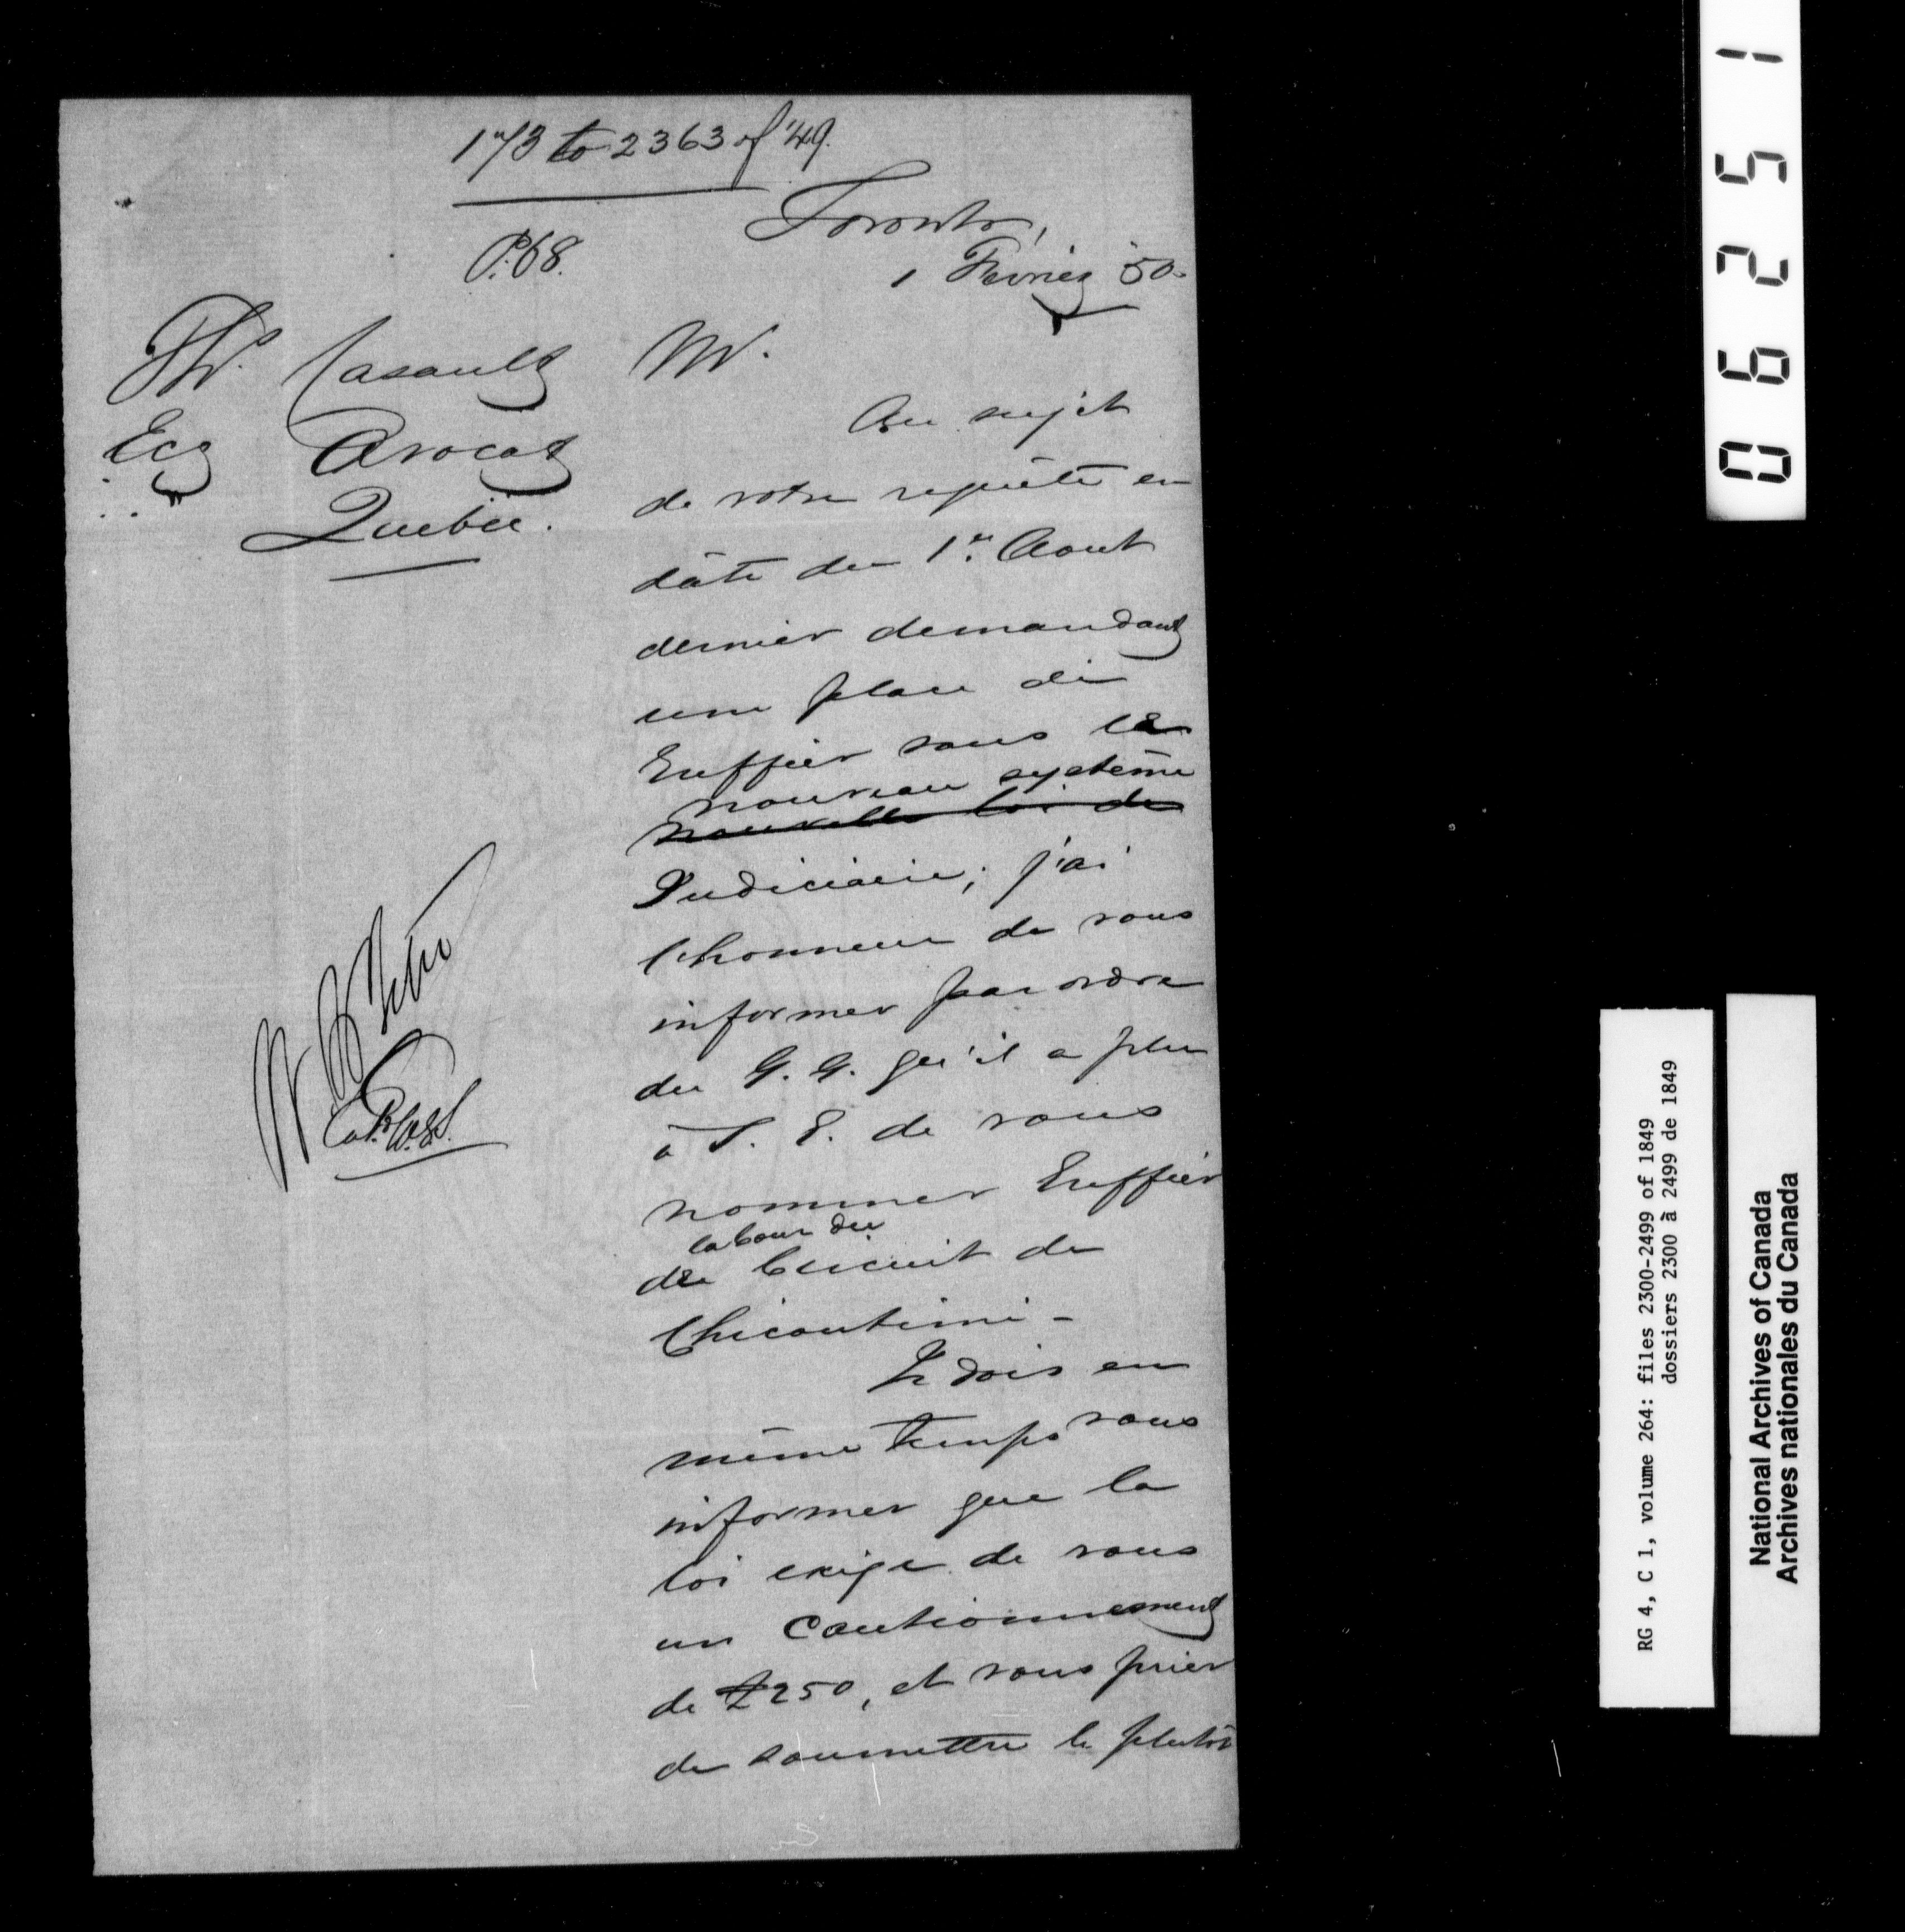 173 to 2363 of '49.
P. 68.
Toronto,
1 Fevrier '50.
Casault
Ecr Avocat
Quebec.
Mr.
Au sujet
de votre requête en
dâte du 1er. Aout
dernier demandant
une place de
Greffier sous le
nouveau système
nouvelle loi de
Judiciaire; j'ai
l'honneur de vous
informer par ordre
du G. G. qu'il a plu
à S. E. de vous
nommer Greffier
la Cour du
de Circuit de
Chicoutimi -
Je dois en
même temps vous
informer que la
loi exige de vous
un Cautionnement
de £250, et vous prier
de soumettre le plutôt
06251
RG 4, C 1, volume 264: files 2300-2499 of 1849
dossiers 2300 à 2499 de 1849
National Archives of Canada
Archives nationales du Canada